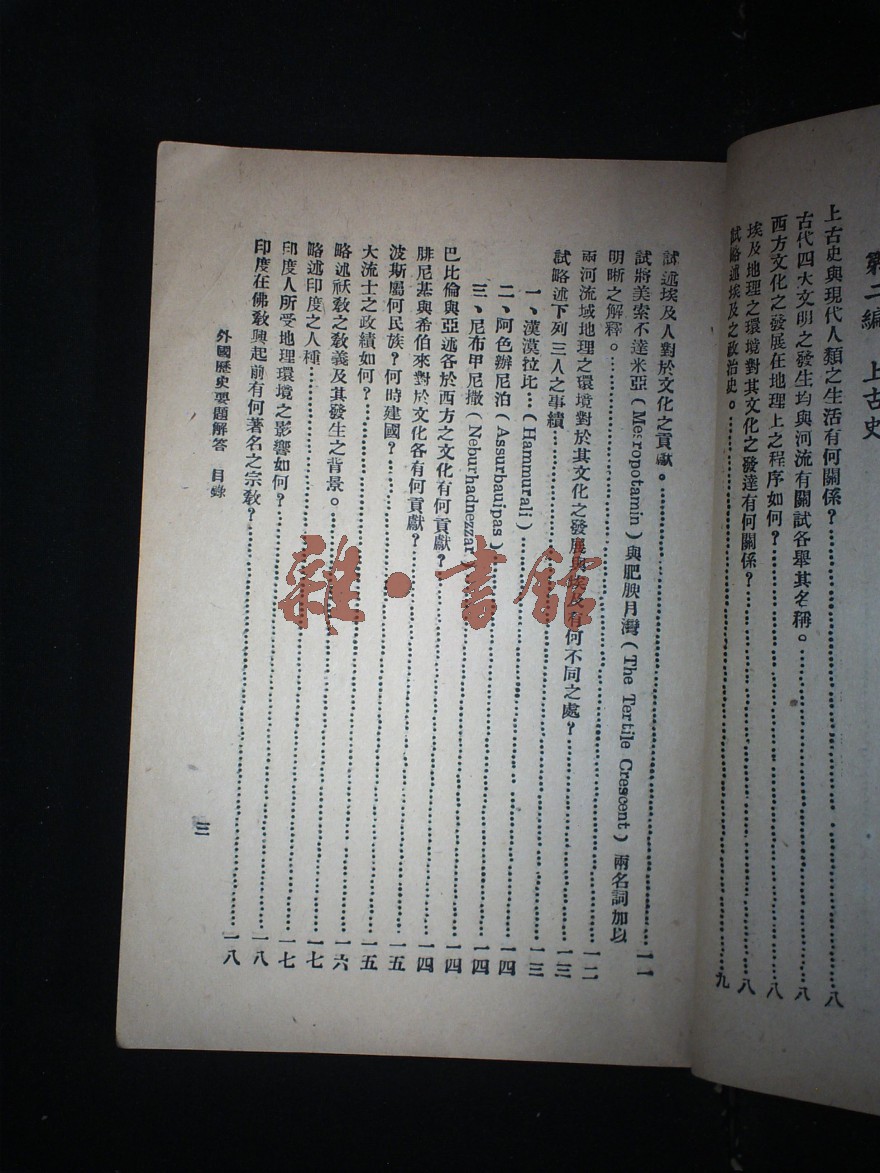 第二編 上古史
上古史與現代人類之生活有何關係?……八
古代四大文明之發生均與河流有關試各舉其名稱。……八
西方文化之發展在地理上之程序如何?……八
埃及地理之環境對其文化之發達有何關係?……八
試略述埃及之政治史。……九
試述埃及人對於文化之貢獻。……一一
試將美索不達米亞(Mesropotamin)與肥腴月灣(The Tertile Crescent)兩名詞加以
明晰之解釋。……一二
兩河流域地理之環境對於其文化之發展與埃及有何不同之處?……一三
試略述下列三人之事績……一三
一、漢漠拉比…(Hammurali)……一四
二、阿色辦尼泊(Assurbauipas)……一四
三、尼布甲尼撒(Neburhadnezzar)……一四
巴比倫與亞述各於西方之文化有何貢獻?……一四
腓尼基與希伯來對於文化各有何貢獻?……一五
波斯屬何民族?何時建國?……一五
大流士之政績如何?……一六
略述祆敎之敎義及其發生之背景。……一七
略述印度之人種……一七
印度人所受地理環境之影響如何?……一八
印度在佛敎興起前有何著名之宗敎?……一八
外國歷史要題解答 目錄
三
雜·書館